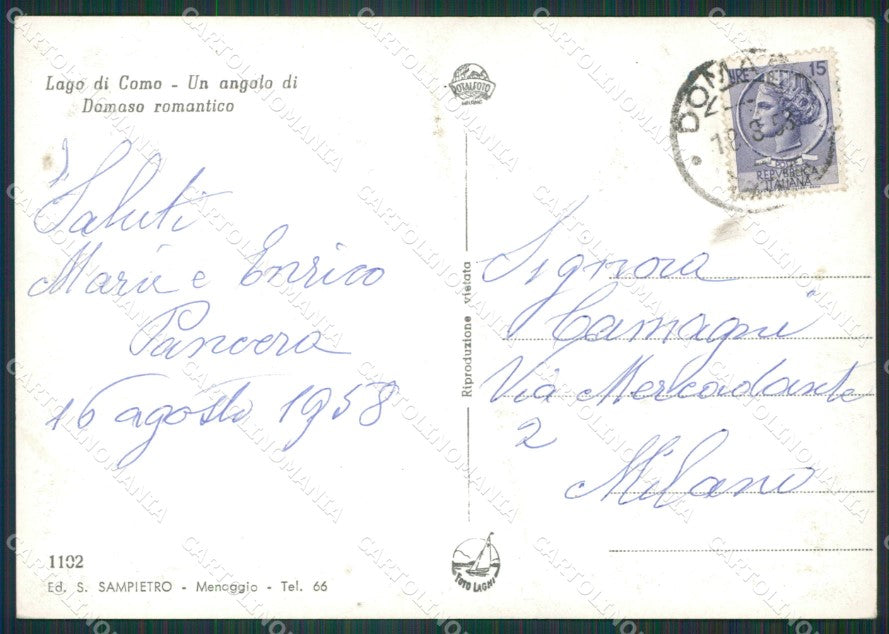 Lago di Como - Un angolo di
Domaso romantico
Saluti
Maria e Enrico
Pancera
16 agosto 1958
1102
Ed. S. SAMPIETRO - Menaggio - Tel. 66
Riproduzione vietata
TOTALFOTO
FOTO LAGHI
DOMASO
18.8.58
LIRE 15
REPVBBLICA
ITALIANA
Signora
Camagni
Via Mercadante
2
Milano
CARTOLINOMANIA